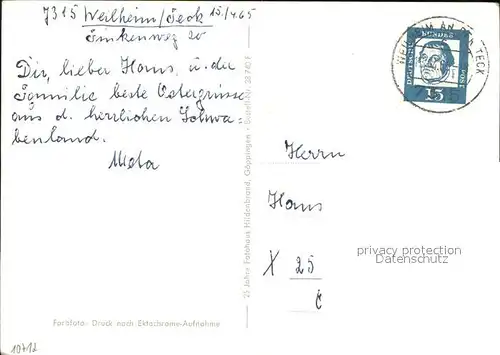 7315 Weilheim/Teck 15./4.65
Finkenweg 20
Dir, lieber Hans, u. der
Familie beste Ostergrüsse
aus d. herrlichen Schwa-
benland.
Meta
DEUTSCHE
15
Herrn
Hans
X 25
privacy protection
Datenschutz
25 Jahre Fotohaus Hildenbrand, Göppingen - Bestell-Nr.
Farbfoto - Druck nach Ektachrome-Aufnahme